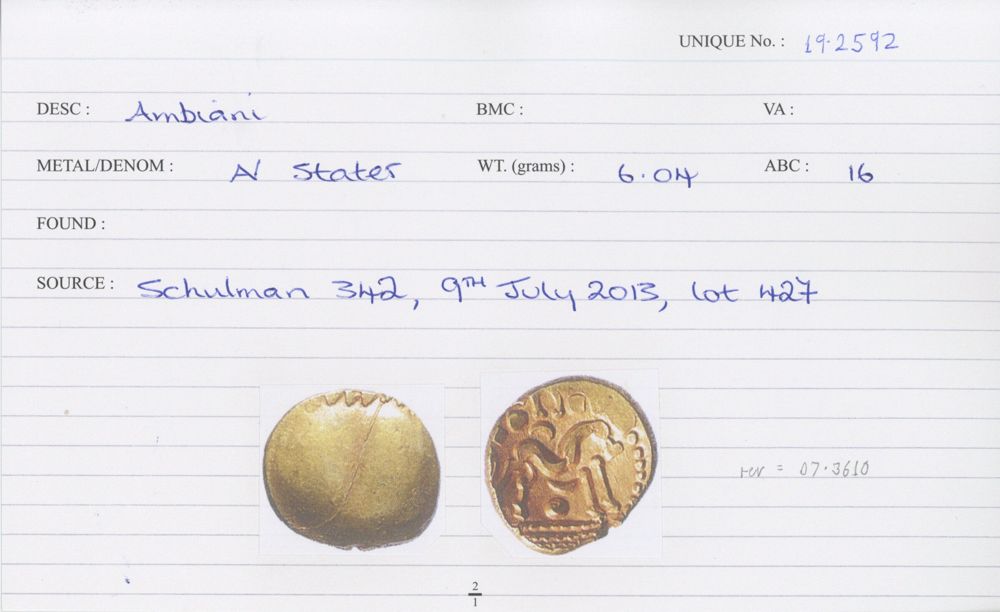 UNIQUE No. : 19.2592
DESC : Ambiani BMC : VA :
METAL/DENOM : AV Stater WT. (grams) : 6.04 ABC : 16
FOUND :
SOURCE : Schulman 342, 9TH July 2013, lot 427
rev = 07.3610
2
1